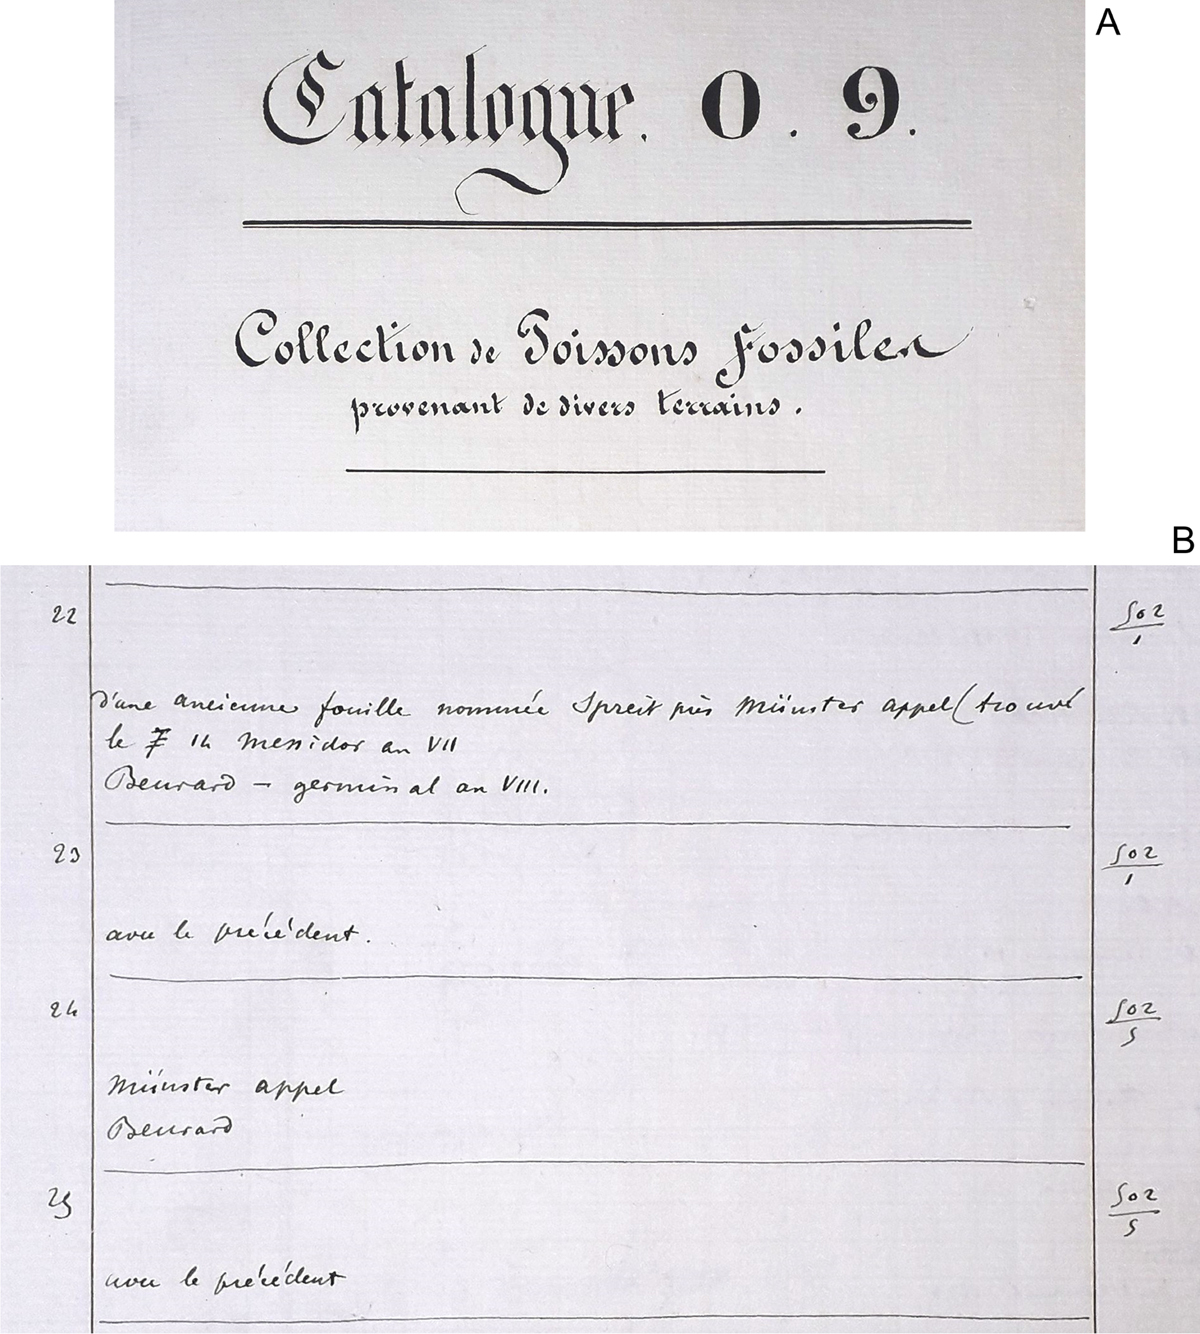 A
Catalogue. O. 9.
Collection de Poissons Fossiles
provenant de divers terrains.
B
22
502/1
d'une ancienne fouille nommée Spreit près Münster appel (trouvé
le 14 Messidor an VII
Beurard – germinal an VIII.
23
502/1
avec le précédent.
24
502/5
Münster appel
Beurard
25
502/5
avec le précédent